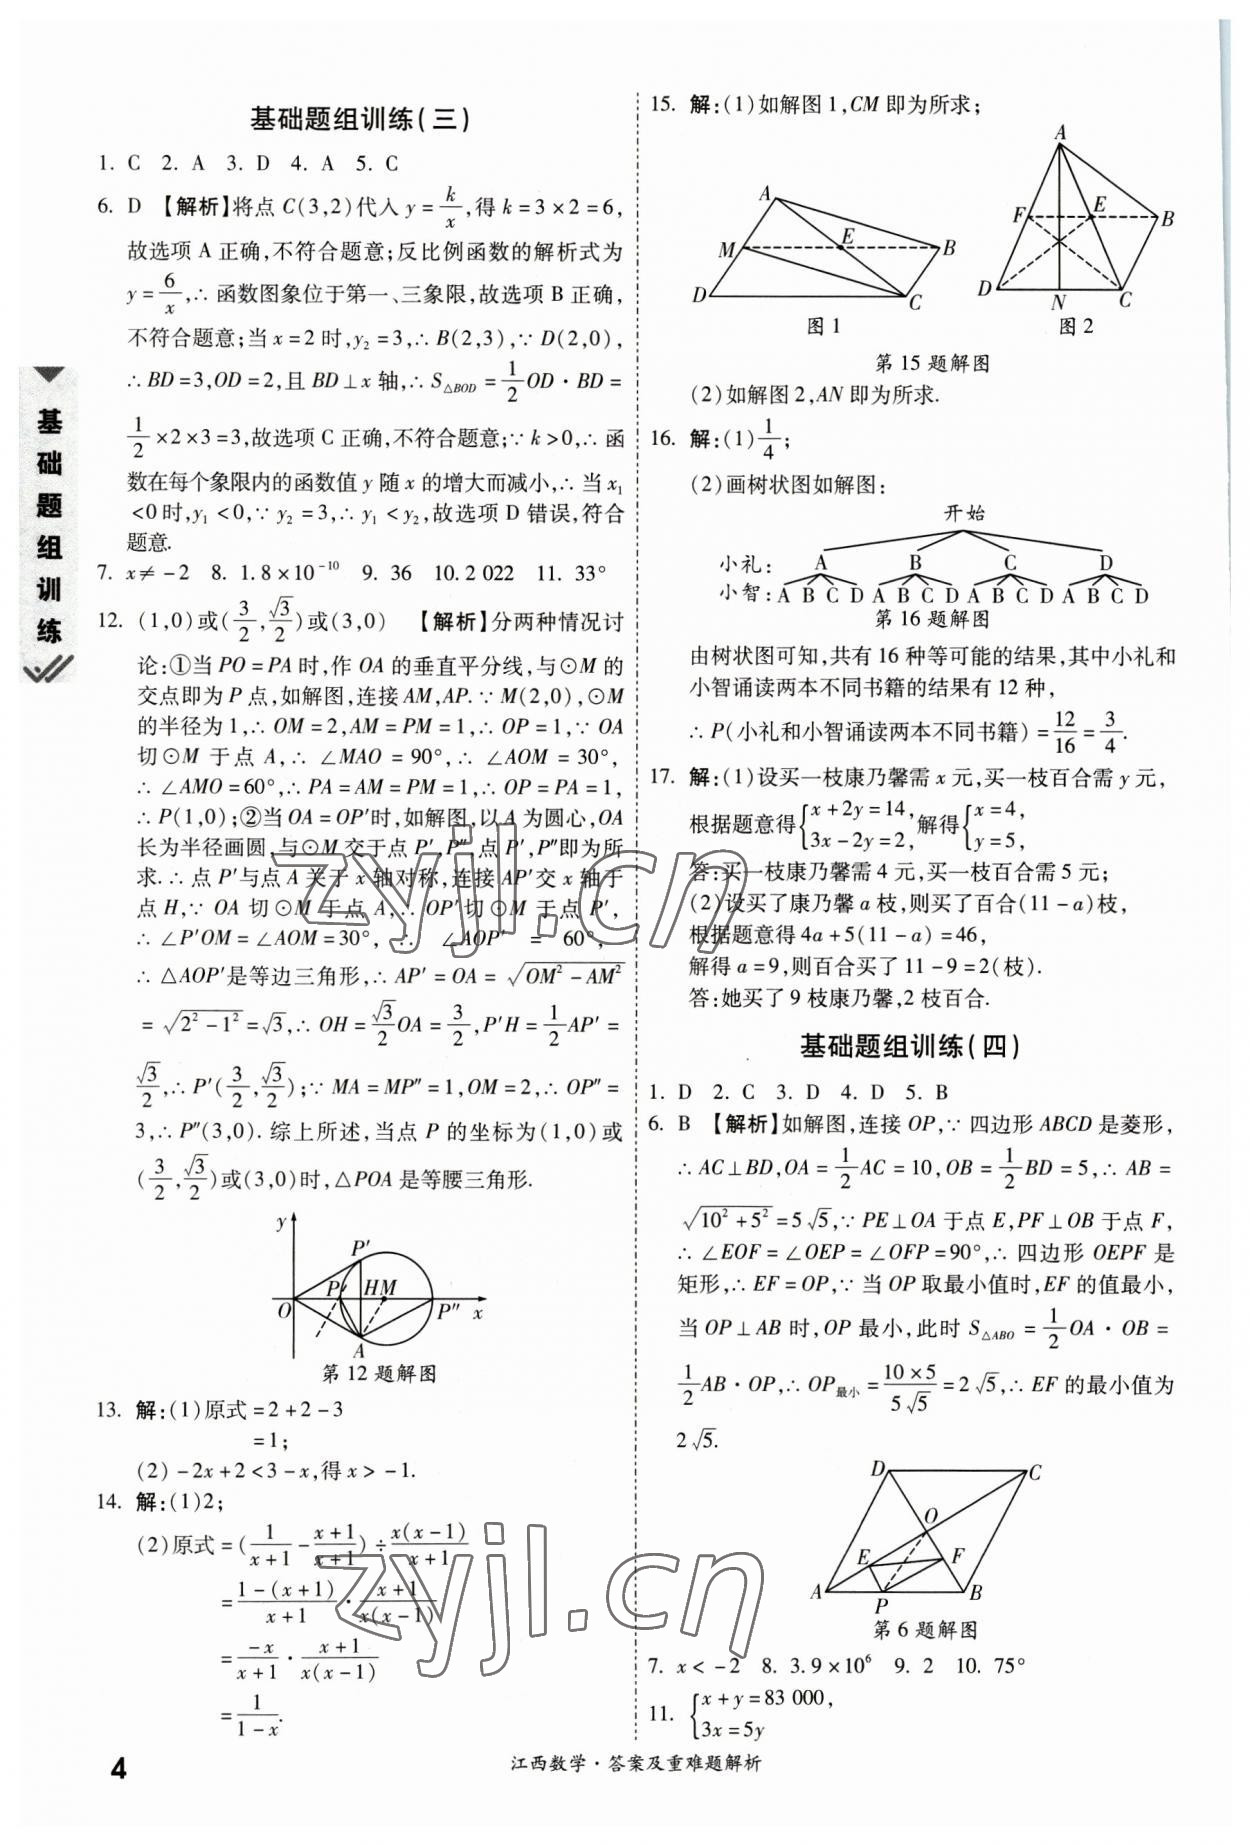 基础题组训练
基础题组训练(三)
1. C 2. A 3. D 4. A 5. C
6. D 【解析】将点 C(3,2)代入 y = k/x,得 k = 3 × 2 = 6,
故选项 A 正确,不符合题意;反比例函数的解析式为
y = 6/x,∴ 函数图象位于第一、三象限,故选项 B 正确,
不符合题意;当 x = 2 时,y₂ = 3,∴ B(2,3),∵ D(2,0),
∴ BD = 3,OD = 2,且 BD ⊥ x 轴,∴ S△BOD = 1/2 OD · BD =
1/2 × 2 × 3 = 3,故选项 C 正确,不符合题意;∵ k > 0,∴ 函
数在每个象限内的函数值 y 随 x 的增大而减小,∴ 当 x₁
< 0 时,y₁ < 0,∵ y₂ = 3,∴ y₁ < y₂,故选项 D 错误,符合
题意.
7. x ≠ - 2 8. 1. 8 × 10⁻¹⁰ 9. 36 10. 2 022 11. 33°
12. (1,0)或(3/2,√3/2)或(3,0) 【解析】分两种情况讨
论:①当 PO = PA 时,作 OA 的垂直平分线,与⊙M 的
交点即为 P 点,如解图,连接 AM,AP. ∵ M(2,0),⊙M
的半径为 1,∴ OM = 2,AM = PM = 1,∴ OP = 1,∵ OA
切⊙M 于点 A,∴ ∠MAO = 90°,∴ ∠AOM = 30°,
∴ ∠AMO = 60°,∴ PA = AM = PM = 1,∴ OP = PA = 1,
∴ P(1,0);②当 OA = OP′时,如解图,以 A 为圆心,OA
长为半径画圆,与⊙M 交于点 P′,P″,点 P′,P″即为所
求. ∴ 点 P′与点 A 关于 x 轴对称,连接 AP′交 x 轴于
点 H,∵ OA 切⊙M 于点 A,∴ OP′切⊙M 于点 P′,
∴ ∠P′OM = ∠AOM = 30°, ∴ ∠AOP′ = 60°,
∴ △AOP′是等边三角形,∴ AP′ = OA = √(OM² - AM²)
= √(2² - 1²) = √3,∴ OH = √3/2 OA = 3/2,P′H = 1/2 AP′ =
√3/2,∴ P′(3/2,√3/2);∵ MA = MP″ = 1,OM = 2,∴ OP″ =
3,∴ P″(3,0). 综上所述,当点 P 的坐标为(1,0)或
(3/2,√3/2)或(3,0)时,△POA 是等腰三角形.
y P′ P H M O P″ x A
第 12 题解图
13. 解:(1)原式 = 2 + 2 - 3
= 1;
(2) - 2x + 2 < 3 - x,得 x > - 1.
14. 解:(1)2;
(2)原式 = (1/(x + 1) - (x + 1)/(x + 1)) ÷ x(x - 1)/(x + 1)
= (1 - (x + 1))/(x + 1) · (x + 1)/(x(x - 1))
= -x/(x + 1) · (x + 1)/(x(x - 1))
= 1/(1 - x).
15. 解:(1)如解图 1,CM 即为所求;
A M E B D C
图 1
A F E B D N C
图 2
第 15 题解图
(2)如解图 2,AN 即为所求.
16. 解:(1)1/4;
(2)画树状图如解图:
开始
小礼: A B C D
小智: A B C D A B C D A B C D A B C D
第 16 题解图
由树状图可知,共有 16 种等可能的结果,其中小礼和
小智诵读两本不同书籍的结果有 12 种,
∴ P(小礼和小智诵读两本不同书籍) = 12/16 = 3/4.
17. 解:(1)设买一枝康乃馨需 x 元,买一枝百合需 y 元,
根据题意得{x + 2y = 14, 3x - 2y = 2,解得{x = 4, y = 5,
答:买一枝康乃馨需 4 元,买一枝百合需 5 元;
(2)设买了康乃馨 a 枝,则买了百合(11 - a)枝,
根据题意得 4a + 5(11 - a) = 46,
解得 a = 9,则百合买了 11 - 9 = 2(枝).
答:她买了 9 枝康乃馨,2 枝百合.
基础题组训练(四)
1. D 2. C 3. D 4. D 5. B
6. B 【解析】如解图,连接 OP,∵ 四边形 ABCD 是菱形,
∴ AC ⊥ BD,OA = 1/2 AC = 10,OB = 1/2 BD = 5,∴ AB =
√(10² + 5²) = 5√5,∵ PE ⊥ OA 于点 E,PF ⊥ OB 于点 F,
∴ ∠EOF = ∠OEP = ∠OFP = 90°,∴ 四边形 OEPF 是
矩形,∴ EF = OP,∵ 当 OP 取最小值时,EF 的值最小,
当 OP ⊥ AB 时,OP 最小,此时 S△ABO = 1/2 OA · OB =
1/2 AB · OP,∴ OP最小 = (10 × 5)/(5√5) = 2√5,∴ EF 的最小值为
2√5.
D C O E F A P B
第 6 题解图
7. x < - 2 8. 3. 9 × 10⁶ 9. 2 10. 75°
11. {x + y = 83 000, 3x = 5y
4
江西数学 · 答案及重难题解析
zyjl.cn
zyjl.cn